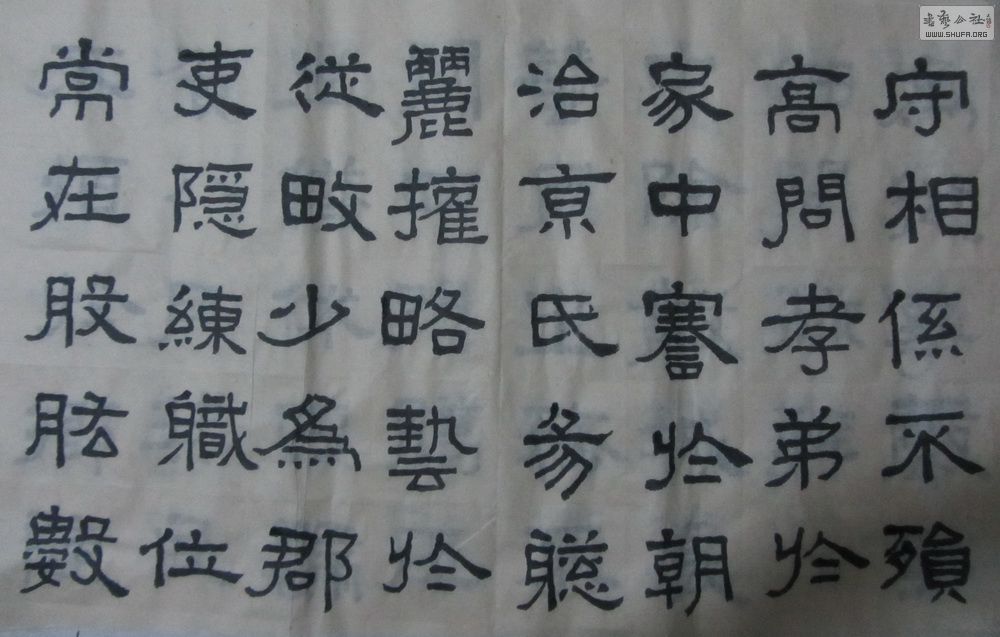 守相係不殞
高問孝弟於
家中謇於朝
治京氏易聰
麗權略藝於
從畋少為郡
吏隱練職位
常在股肱數
書藝公社
WWW.SHUFA.ORG